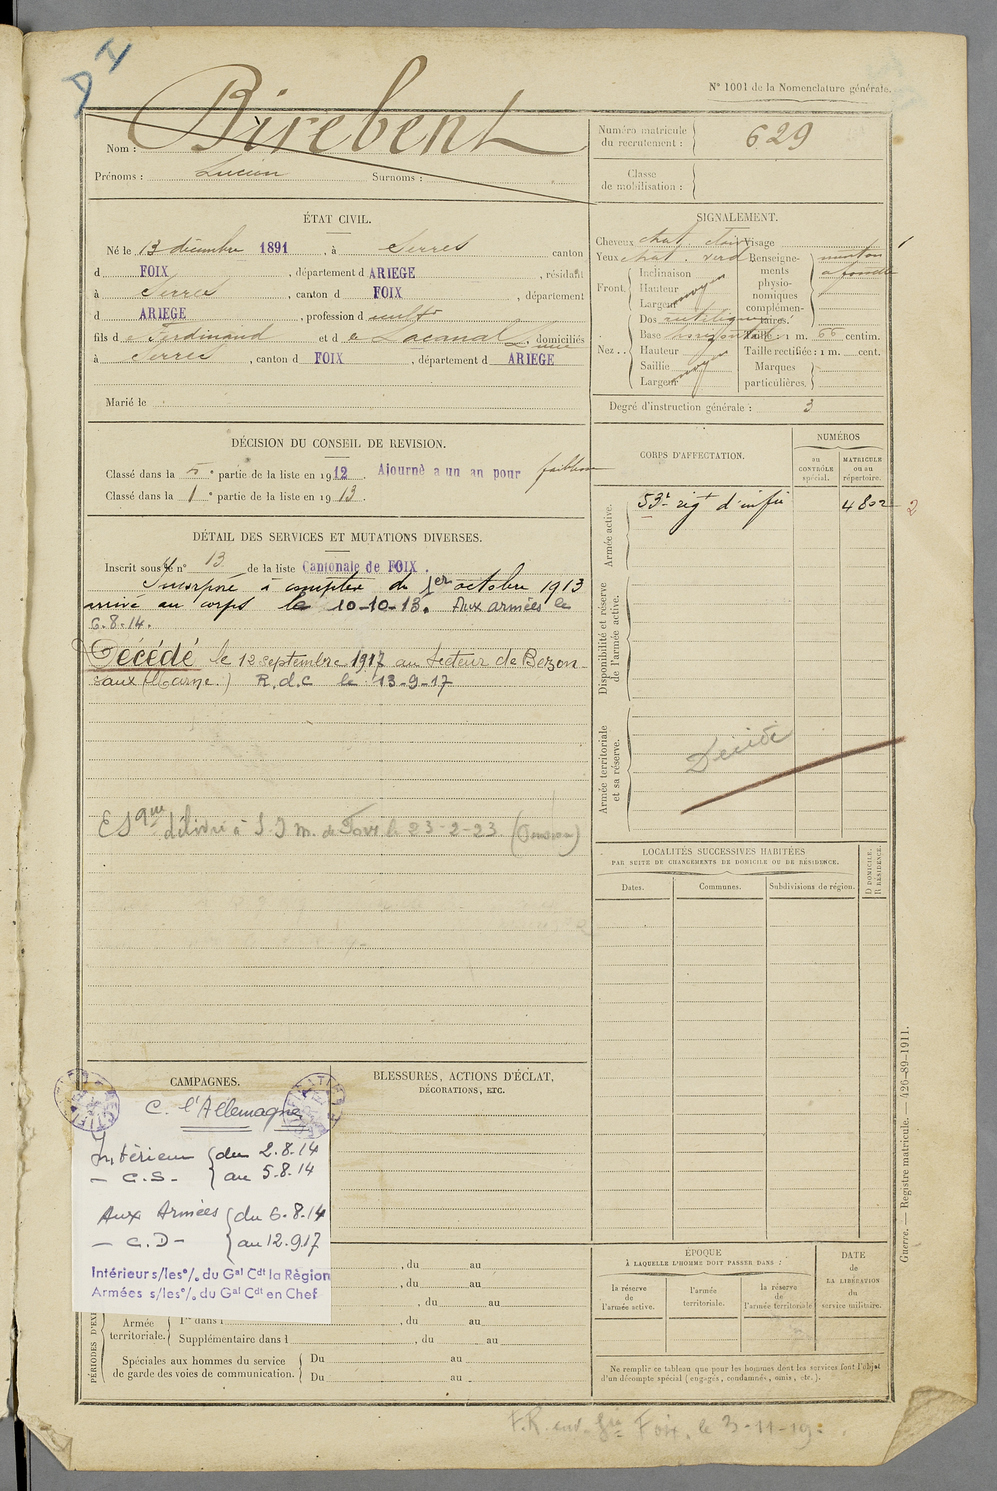 N° 1001 de la Nomenclature générale.
Nom : Birebent
Prénoms : Lucien Surnoms :
Numéro matricule du recrutement : 629
Classe de mobilisation :
ÉTAT CIVIL.
Né le 13 décembre 1891, à Serres canton
d FOIX, département d ARIEGE, résidant
à Serres, canton d FOIX, département
d ARIEGE, profession de cultr
fils de Ferdinand et de Lacanal, domiciliés
à Serres, canton d FOIX, département d ARIEGE
Marié le
SIGNALEMENT.
Cheveux chat. clair Visage
Yeux chat. verd
Front. Inclinaison
Hauteur moyen
Largeur
Nez.. Dos rectiligne
Base horizontale
Hauteur
Saillie moyen
Largeur
Renseignements physionomiques complémentaires : menton à fossette
Taille : 1 m. 66 centim.
Taille rectifiée : 1 m. cent.
Marques particulières.
Degré d'instruction générale : 3
DÉCISION DU CONSEIL DE REVISION.
Classé dans la 5e partie de la liste en 1912. Ajourné a un an pour faiblesse
Classé dans la 1e partie de la liste en 1913.
DÉTAIL DES SERVICES ET MUTATIONS DIVERSES.
Inscrit sous le n° 13 de la liste Cantonale de FOIX.
Incorporé à compter du 1er octobre 1913
arrivé au corps le 10-10-13. Aux armées le
6.8.14.
Décédé le 12 septembre 1917 au secteur de Bezon-
vaux (Marne.) R.d.c le 13-9-17
délivré à S. I. M. de Foix le 23-2-23
CORPS D'AFFECTATION.
NUMÉROS
au CONTRÔLE spécial.
MATRICULE ou au répertoire.
Armée active.
53e rigt d'infie 4802 2
Disponibilité et réserve de l'armée active.
Armée territoriale et sa réserve.
Décédé
LOCALITÉS SUCCESSIVES HABITÉES
PAR SUITE DE CHANGEMENTS DE DOMICILE OU DE RÉSIDENCE.
Dates. Communes. Subdivisions de région. D DOMICILE. R RÉSIDENCE.
CAMPAGNES.
C. l'Allemagne
Intérieur du 2.8.14
- C.S. - au 5.8.14
Aux Armées du 6.8.14
- C.D - au 12.9.17
Intérieur s/les°/. du Gal Cdt la Règion
Armées s/les°/. du Gal Cdt en Chef
BLESSURES, ACTIONS D'ÉCLAT,
DÉCORATIONS, ETC.
, du au
, du au
, du au
Armée territoriale. 1re dans l , du au
Supplémentaire dans l , du au
Spéciales aux hommes du service de garde des voies de communication. Du au
Du au
ÉPOQUE
À LAQUELLE L'HOMME DOIT PASSER DANS :
la réserve de l'armée active.
l'armée territoriale.
la réserve de l'armée territoriale
DATE de LA LIBÉRATION du service militaire.
Ne remplir ce tableau que pour les hommes dont les services font l'objet
d'un décompte spécial (engagés, condamnés, omis, etc.).
Guerre. — Registre matricule. — 426-89-1911.
Foix, le 3-11-19